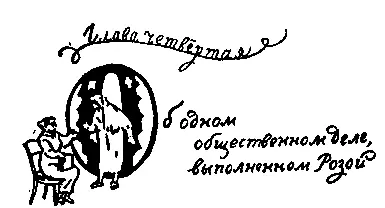 Глава четвёртая
Об одном
общественном деле,
выполненном Розой